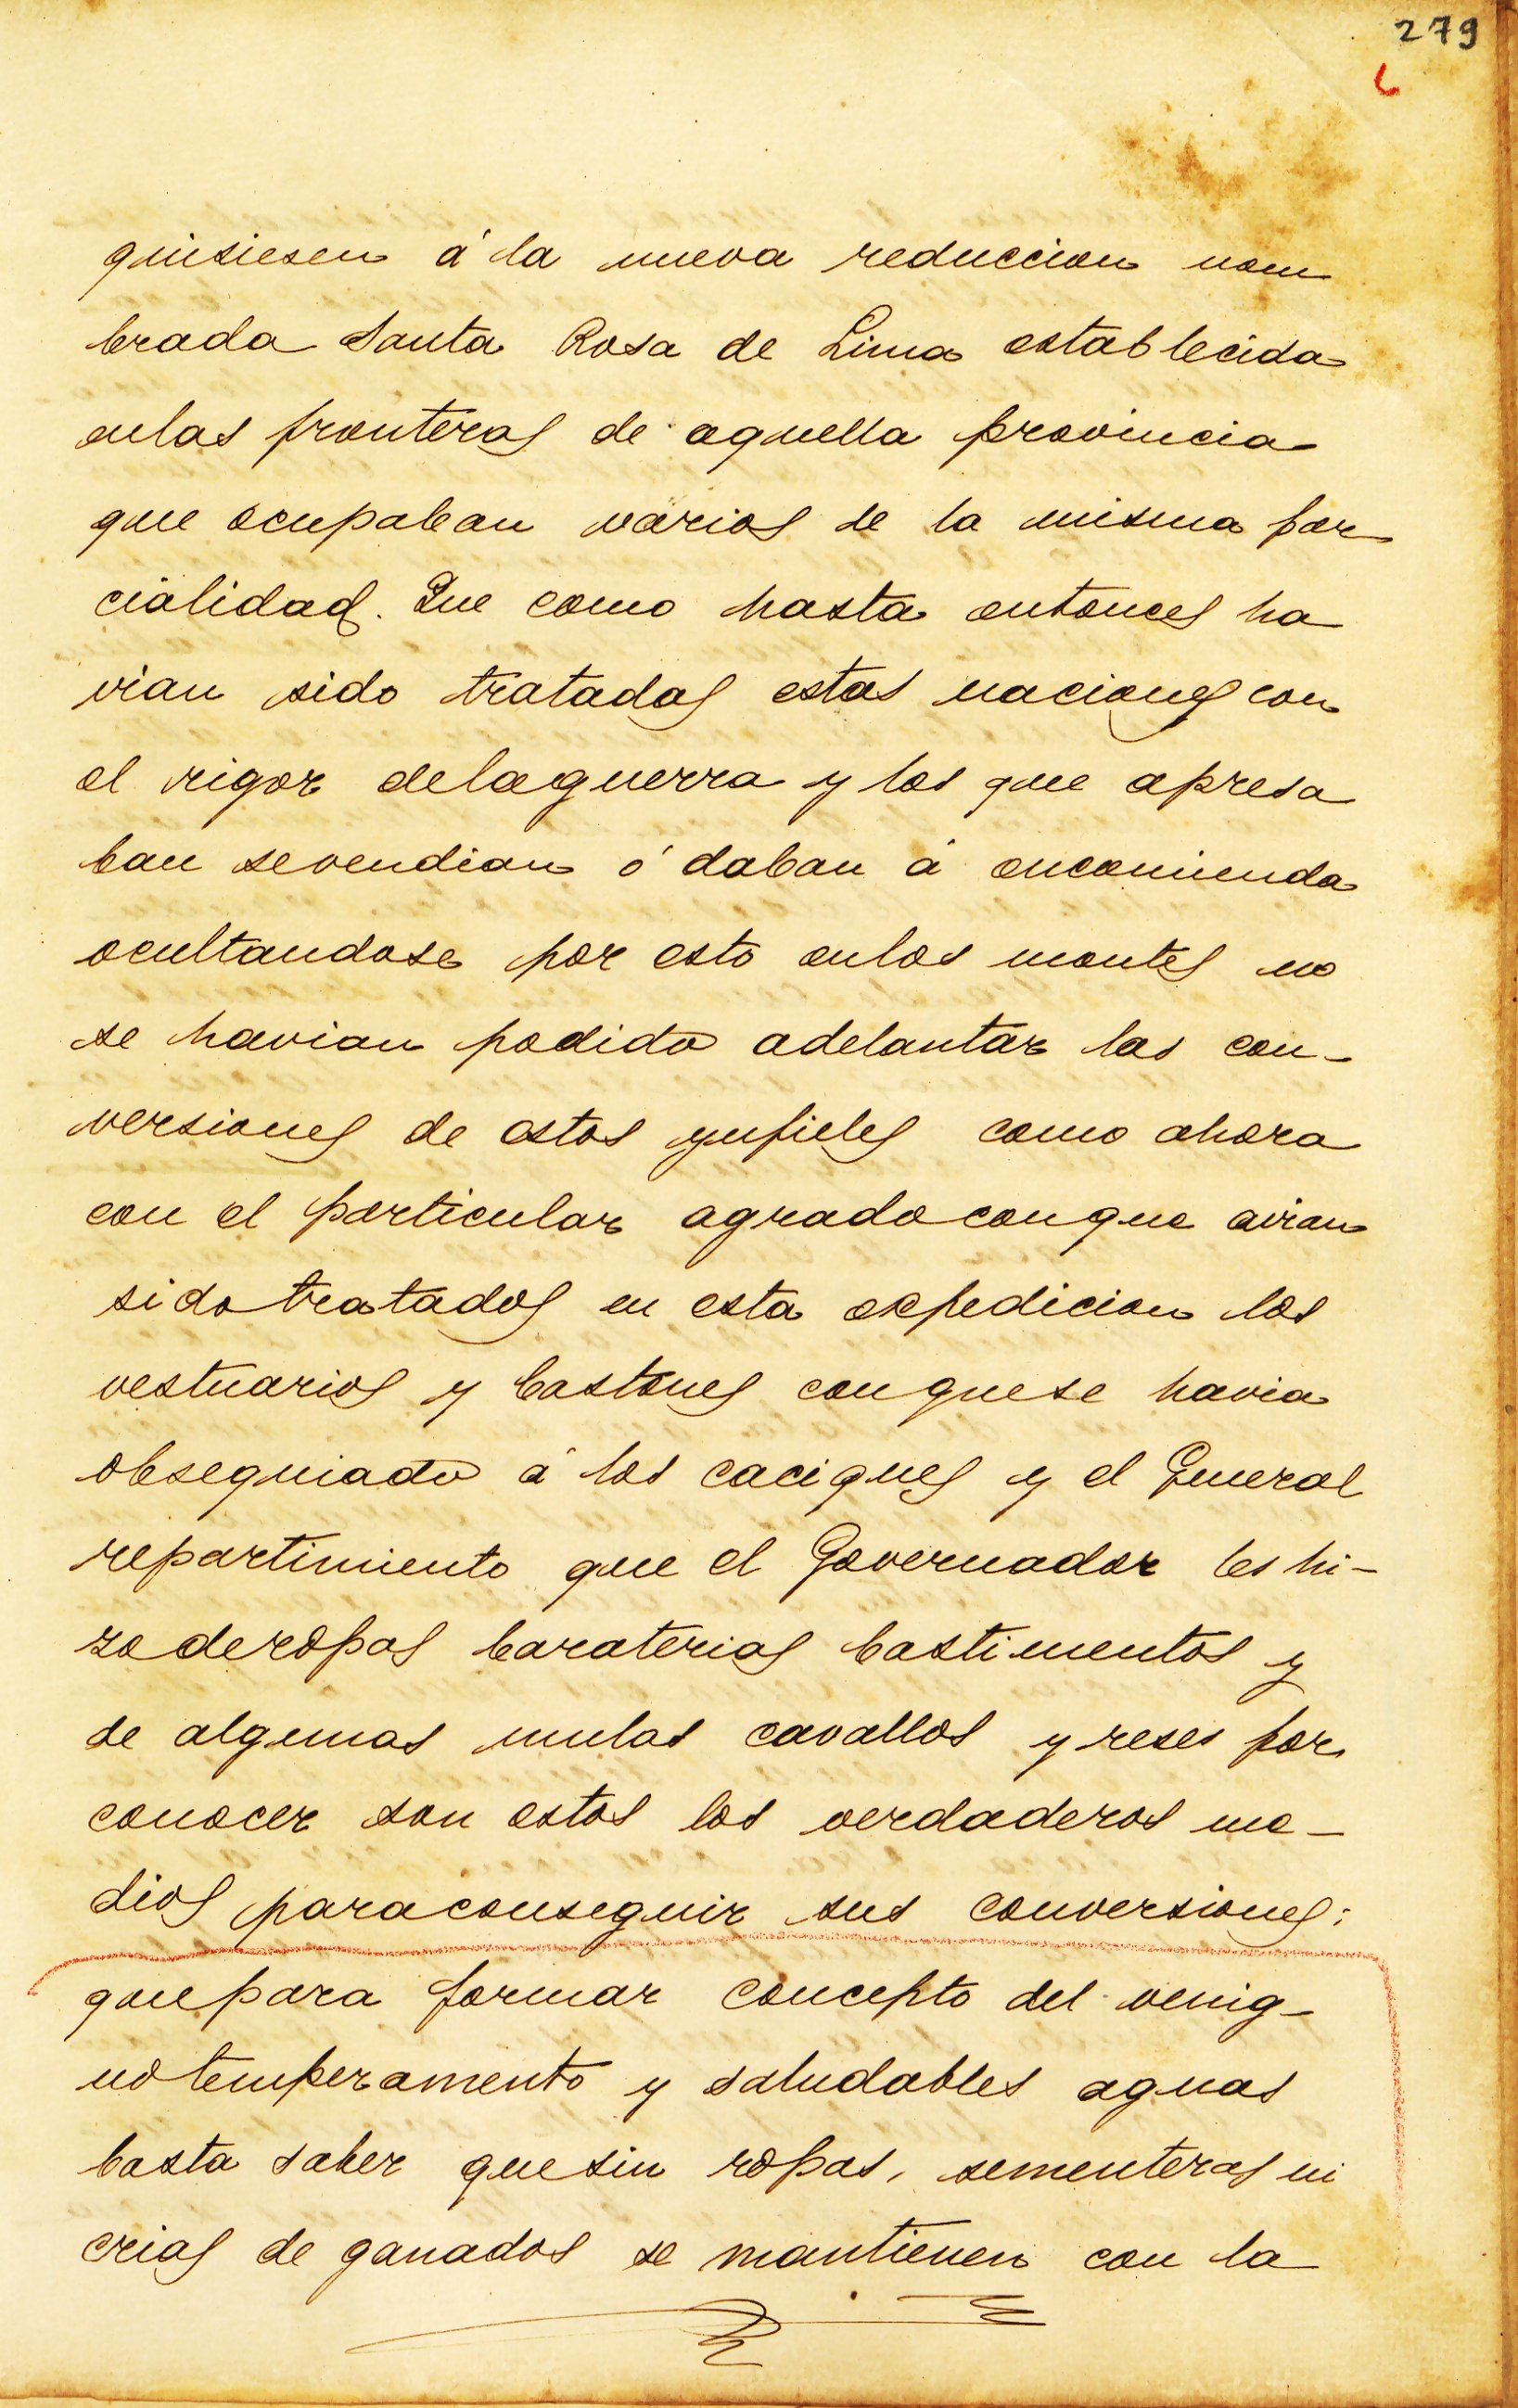 279
quisiesen á la nueva reduccion nom
brada Santa Rosa de Lima establecida
enlas fronteras de aquella provincia
que ocupaban varios de la misma par
cialidad. Que como hasta entonces ha
vian sido tratadas estas naciones con
el rigor delaguerra y los que apresa
ban sevendian ó daban á encomienda
ocultandose por esto enlos montes no
se havian podido adelantar las con-
versiones de estos ynfieles como ahora
con el particular agradoconque avian
sidotratados en esta expedicion los
vestuarios y bastones conquese havia
obsequiado á los caciques y el General
repartimiento que el Governador les hi-
zo deropas baraterias bastimentos y
de algunas mulas cavallos y reses por
conocer son estos los verdaderos me-
dios paraconseguir sus conversiones;
quepara formar concepto del venig-
no temperamento y saludables aguas
basta saber quesin ropas, sementeras ni
crias de ganados se mantienen con la